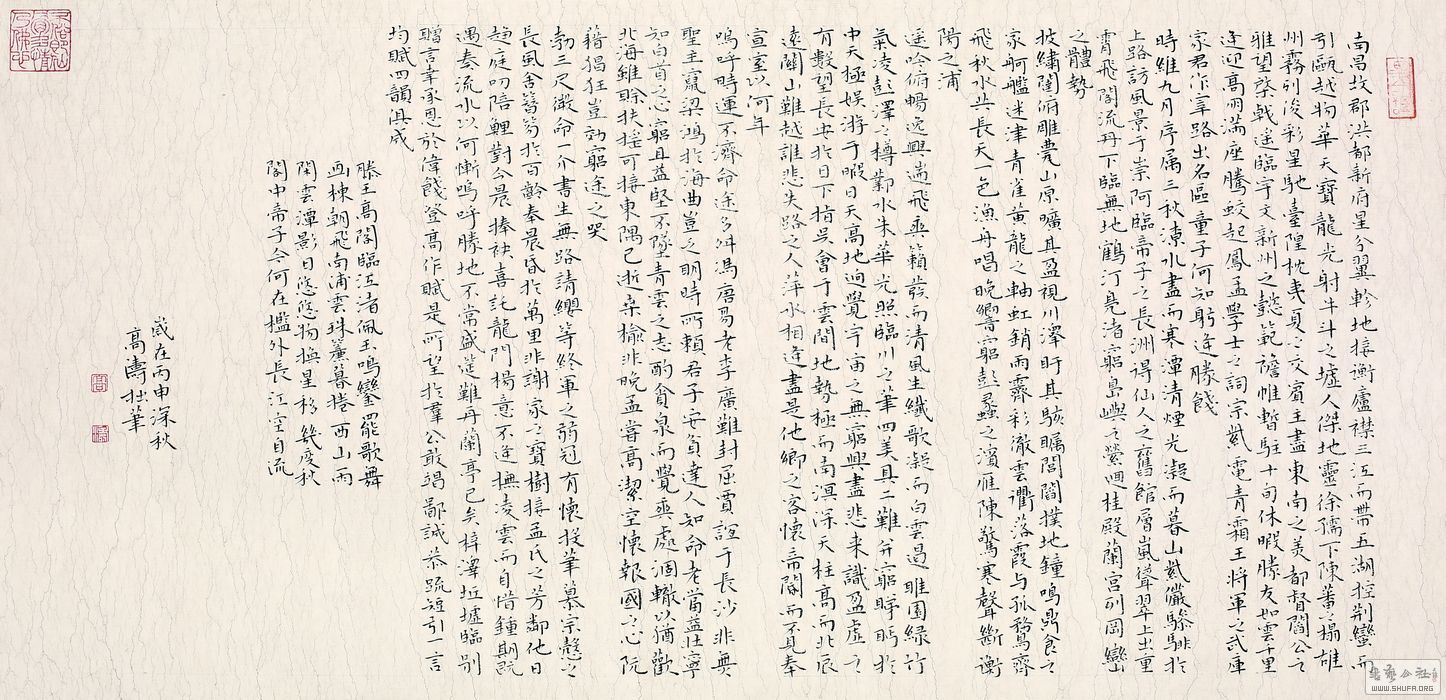 南昌故郡洪都新府星分翼軫地接衡廬襟三江而帶五湖控荆蠻而
引甌越物華天寶龍光射牛斗之墟人傑地靈徐孺下陳蕃之榻雄
州霧列俊彩星馳臺隍枕夷夏之交賓主盡東南之美都督閻公之
雅望棨戟遥臨宇文新州之懿範襜帷暫駐十旬休暇勝友如雲千里
逢迎高朋滿座騰蛟起鳳孟學士之詞宗紫電青霜王將軍之武庫
家君作宰路出名區童子何知躬逢勝餞
時維九月序属三秋潦水盡而寒潭清煙光凝而暮山紫儼驂騑於
上路訪風景于崇阿臨帝子之長洲得仙人之舊館層巒聳翠上出重
霄飛閣流丹下臨無地鶴汀凫渚窮島嶼之縈迴桂殿蘭宫列岡巒
之體勢
披繡闥俯雕甍山原曠其盈視川澤盱其駭矚閭閻撲地鐘鳴鼎食之
家舸艦迷津青雀黄龍之軸虹銷雨霽彩徹雲衢落霞与孤鶩齊
飛秋水共長天一色漁舟唱晚響窮彭蠡之濱雁陳驚寒聲斷衡
陽之浦
遥吟俯暢逸興遄飛爽籟發而清風生纖歌凝而白雲遏睢園緑竹
氣凌彭澤之樽鄴水朱華光照臨川之筆四美具二難并窮睇眄於
中天極娱游于暇日天高地迥覺宇宙之無窮興盡悲来識盈虚之
有數望長安於日下指吴會于雲間地勢極而南溟深天柱高而北辰
遠關山難越誰悲失路之人萍水相逢盡是他鄉之客懷帝閽而不見奉
宣室以何年
嗚呼時運不濟命途多舛馮唐易老李廣難封屈賈誼于長沙非無
聖主竄梁鴻於海曲豈乏明時所賴君子安貧達人知命老當益壯寧
知白首之心窮且益堅不墜青雲之志酌貪泉而覺爽處涸轍以猶歡
北海雖賒扶摇可接東隅已逝桑榆非晚孟嘗高潔空懷報國之心阮
藉猖狂豈効窮途之哭
勃三尺微命一介書生無路請纓等終軍之弱冠有懷投筆慕宗慤之
長風舍簪笏於百齡奉晨昏於萬里非謝家之寶樹接孟氏之芳鄰他日
趨庭叨陪鯉對今晨捧袂喜託龍門楊意不逢撫凌雲而自惜鍾期既
遇奏流水以何慚嗚呼勝地不常盛筵難再蘭亭已矣梓澤丘墟臨别
贈言幸承恩於偉餞登高作賦是所望於羣公敢竭鄙誠恭疏短引一言
均賦四韻俱成
滕王高閣臨江渚佩玉鳴鑾罷歌舞
画棟朝飛南浦雲珠簾暮捲西山雨
閑雲潭影日悠悠物换星移幾度秋
閣中帝子今何在檻外長江空自流
歲在丙申深秋
高濤拙筆
WWW.SHUFA.ORG